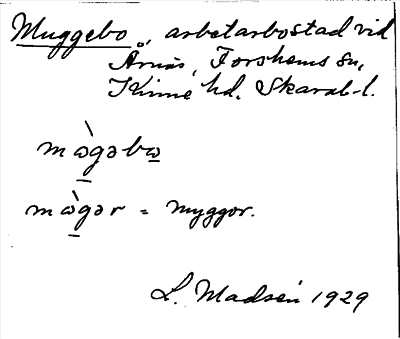 Muggebo, arbetarbostad vid
Årnäs, Forshems sn,
Kinne hd. Skarab-l.
mὼgəbω
mὼgər = myggor.
L. Madsén 1929